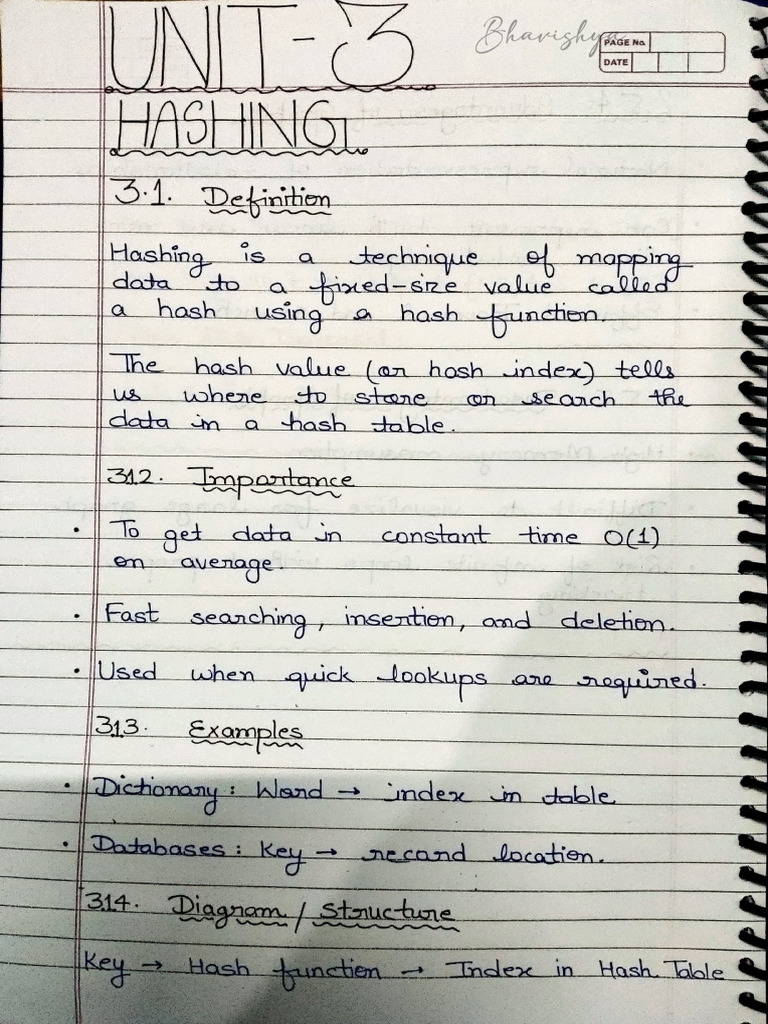 UNIT-3
Bhavishya
PAGE No.
DATE
HASHING
3.1. Definition
Hashing is a technique of mapping
data to a fixed-size value called
a hash using a hash function.
The hash value (or hash index) tells
us where to store or search the
data in a hash table.
3.1.2. Importance
• To get data in constant time O(1)
on average.
• Fast searching, insertion, and deletion.
• Used when quick lookups are required.
3.1.3. Examples
• Dictionary: Word → index in table
• Databases: Key → record location.
3.1.4. Diagram / Structure
Key → Hash function → Index in Hash Table